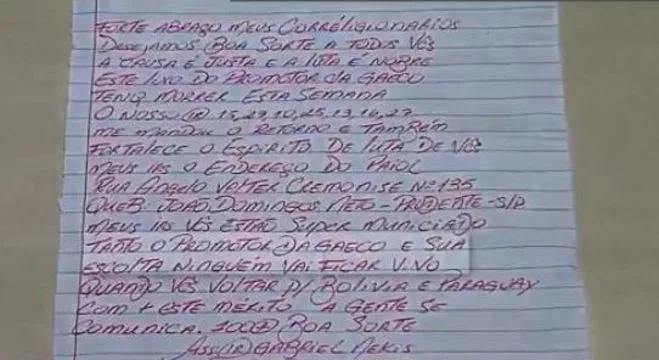 FORTE ABRAÇO MEUS CORRÉLIGIONARIOS
DESEJAMOS BOA SORTE A TODOS VÊS
A CAUSA É JUSTA E A LUTA É NOBRE
ESTE LIXO DO PROMOTOR DA GAECO
TENQ MORRER ESTA SEMANA
O NOSSO 15,29,10,25,13,16,27
ME MANDOU O RETORNO E TAMBÉM
FORTALECE O ESPIRITO DE LUTA DE VÊS
MEUS IRS O ENDEREÇO DO PAIOL
RUA ANGELO VOLTER CREMONISE Nº 135
QUEB. JOÃO DOMINGOS NETO - PRUDENTE - S/P
MEUS IRS VÊS ESTÃO SUPER MUNICIADO
TANTO O PROMOTOR DA GAECO E SUA
ESCOLTA NINGUÉM VAI FICAR VIVO
QUANDO VÊS VOLTAR P/ BOLIVIA E PARAGUAY
COM + ESTE MÉRITO A GENTE SE
COMUNICA. BOA SORTE
ASS GABRIEL NEKIS